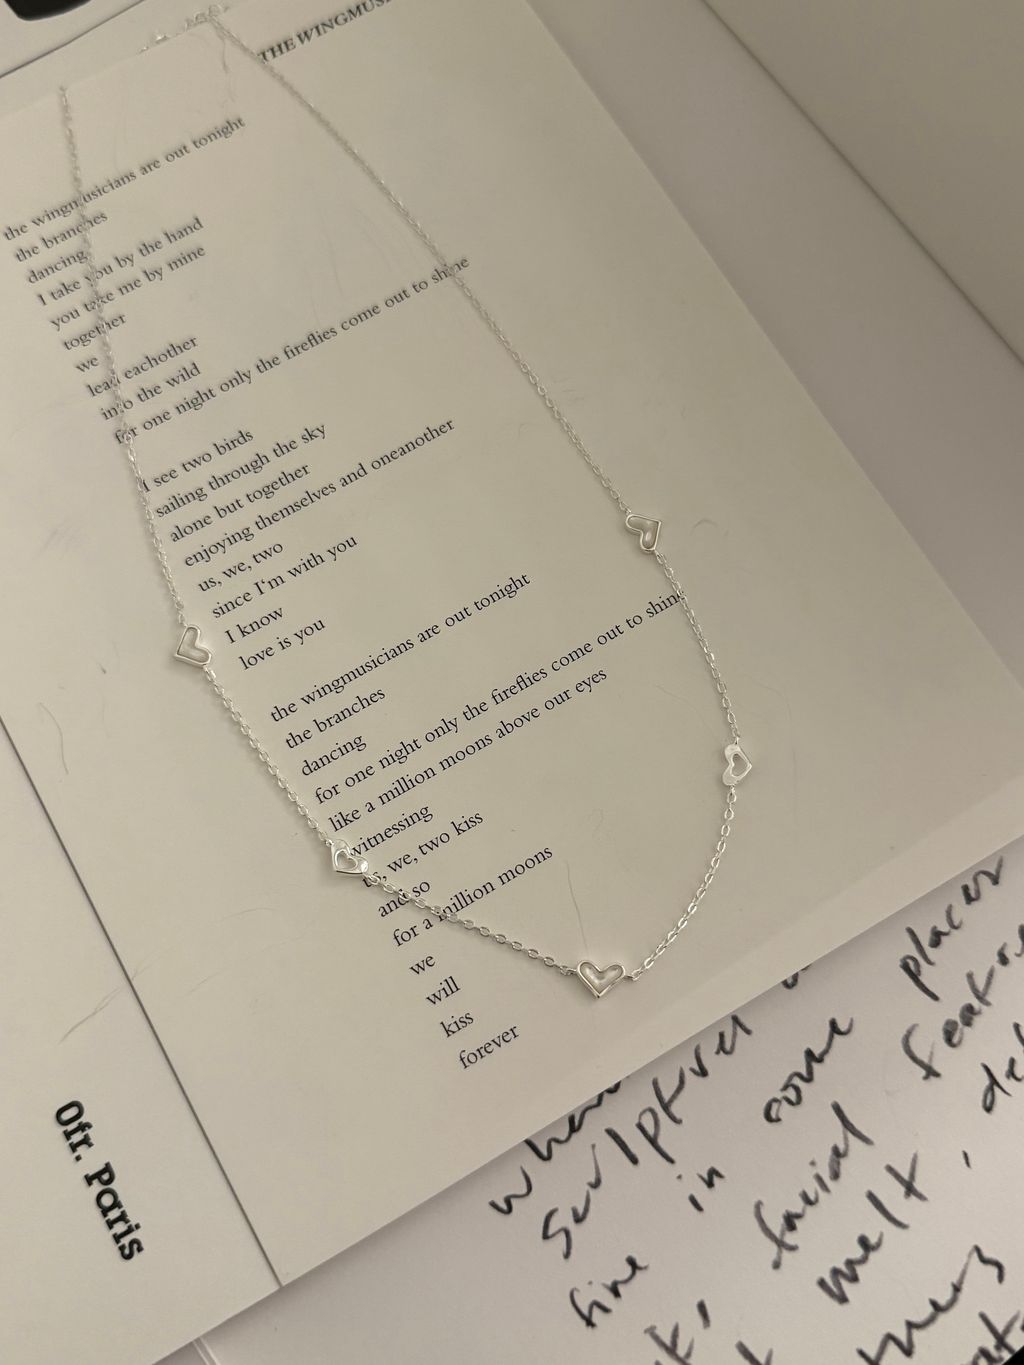 THE WINGMUS
the wingmusicians are out tonight
the branches
dancing
I take you by the hand
you take me by mine
together
we
lead eachother
into the wild
for one night only the fireflies come out to shine
I see two birds
sailing through the sky
alone but together
enjoying themselves and oneanother
us, we, two
since I'm with you
I know
love is you
the wingmusicians are out tonight
the branches
dancing
for one night only the fireflies come out to shine
like a million moons above our eyes
witnessing
us, we, two kiss
and so
for a million moons
we
will
kiss
forever
Ofr. Paris
places
come
in
facial
fine
melt,